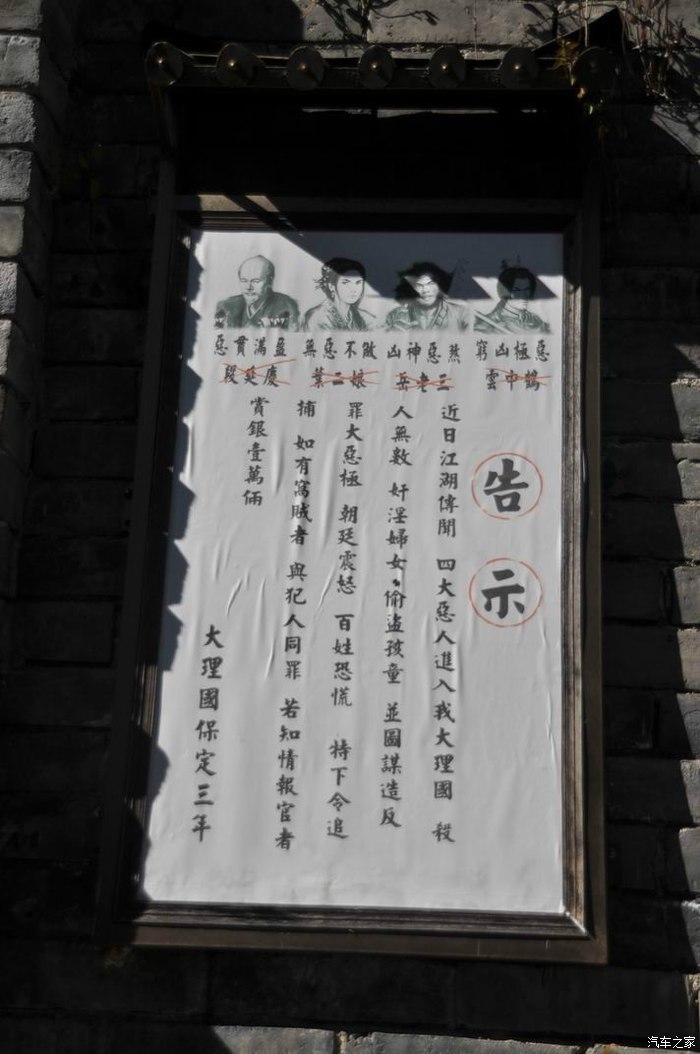 惡貫滿盈 無惡不做 凶神惡煞 窮凶極惡
段延慶 葉二娘 岳老三 雲中鶴
告示
近日江湖傳聞 四大惡人進入我大理國 殺
人無數 奸淫婦女 偷盜孩童 並圖謀造反
罪大惡極 朝廷震怒 百姓恐慌 特下令追
捕 如有窩賊者 與犯人同罪 若知情報官者
賞銀壹萬倆
大理國保定三年
汽车之家